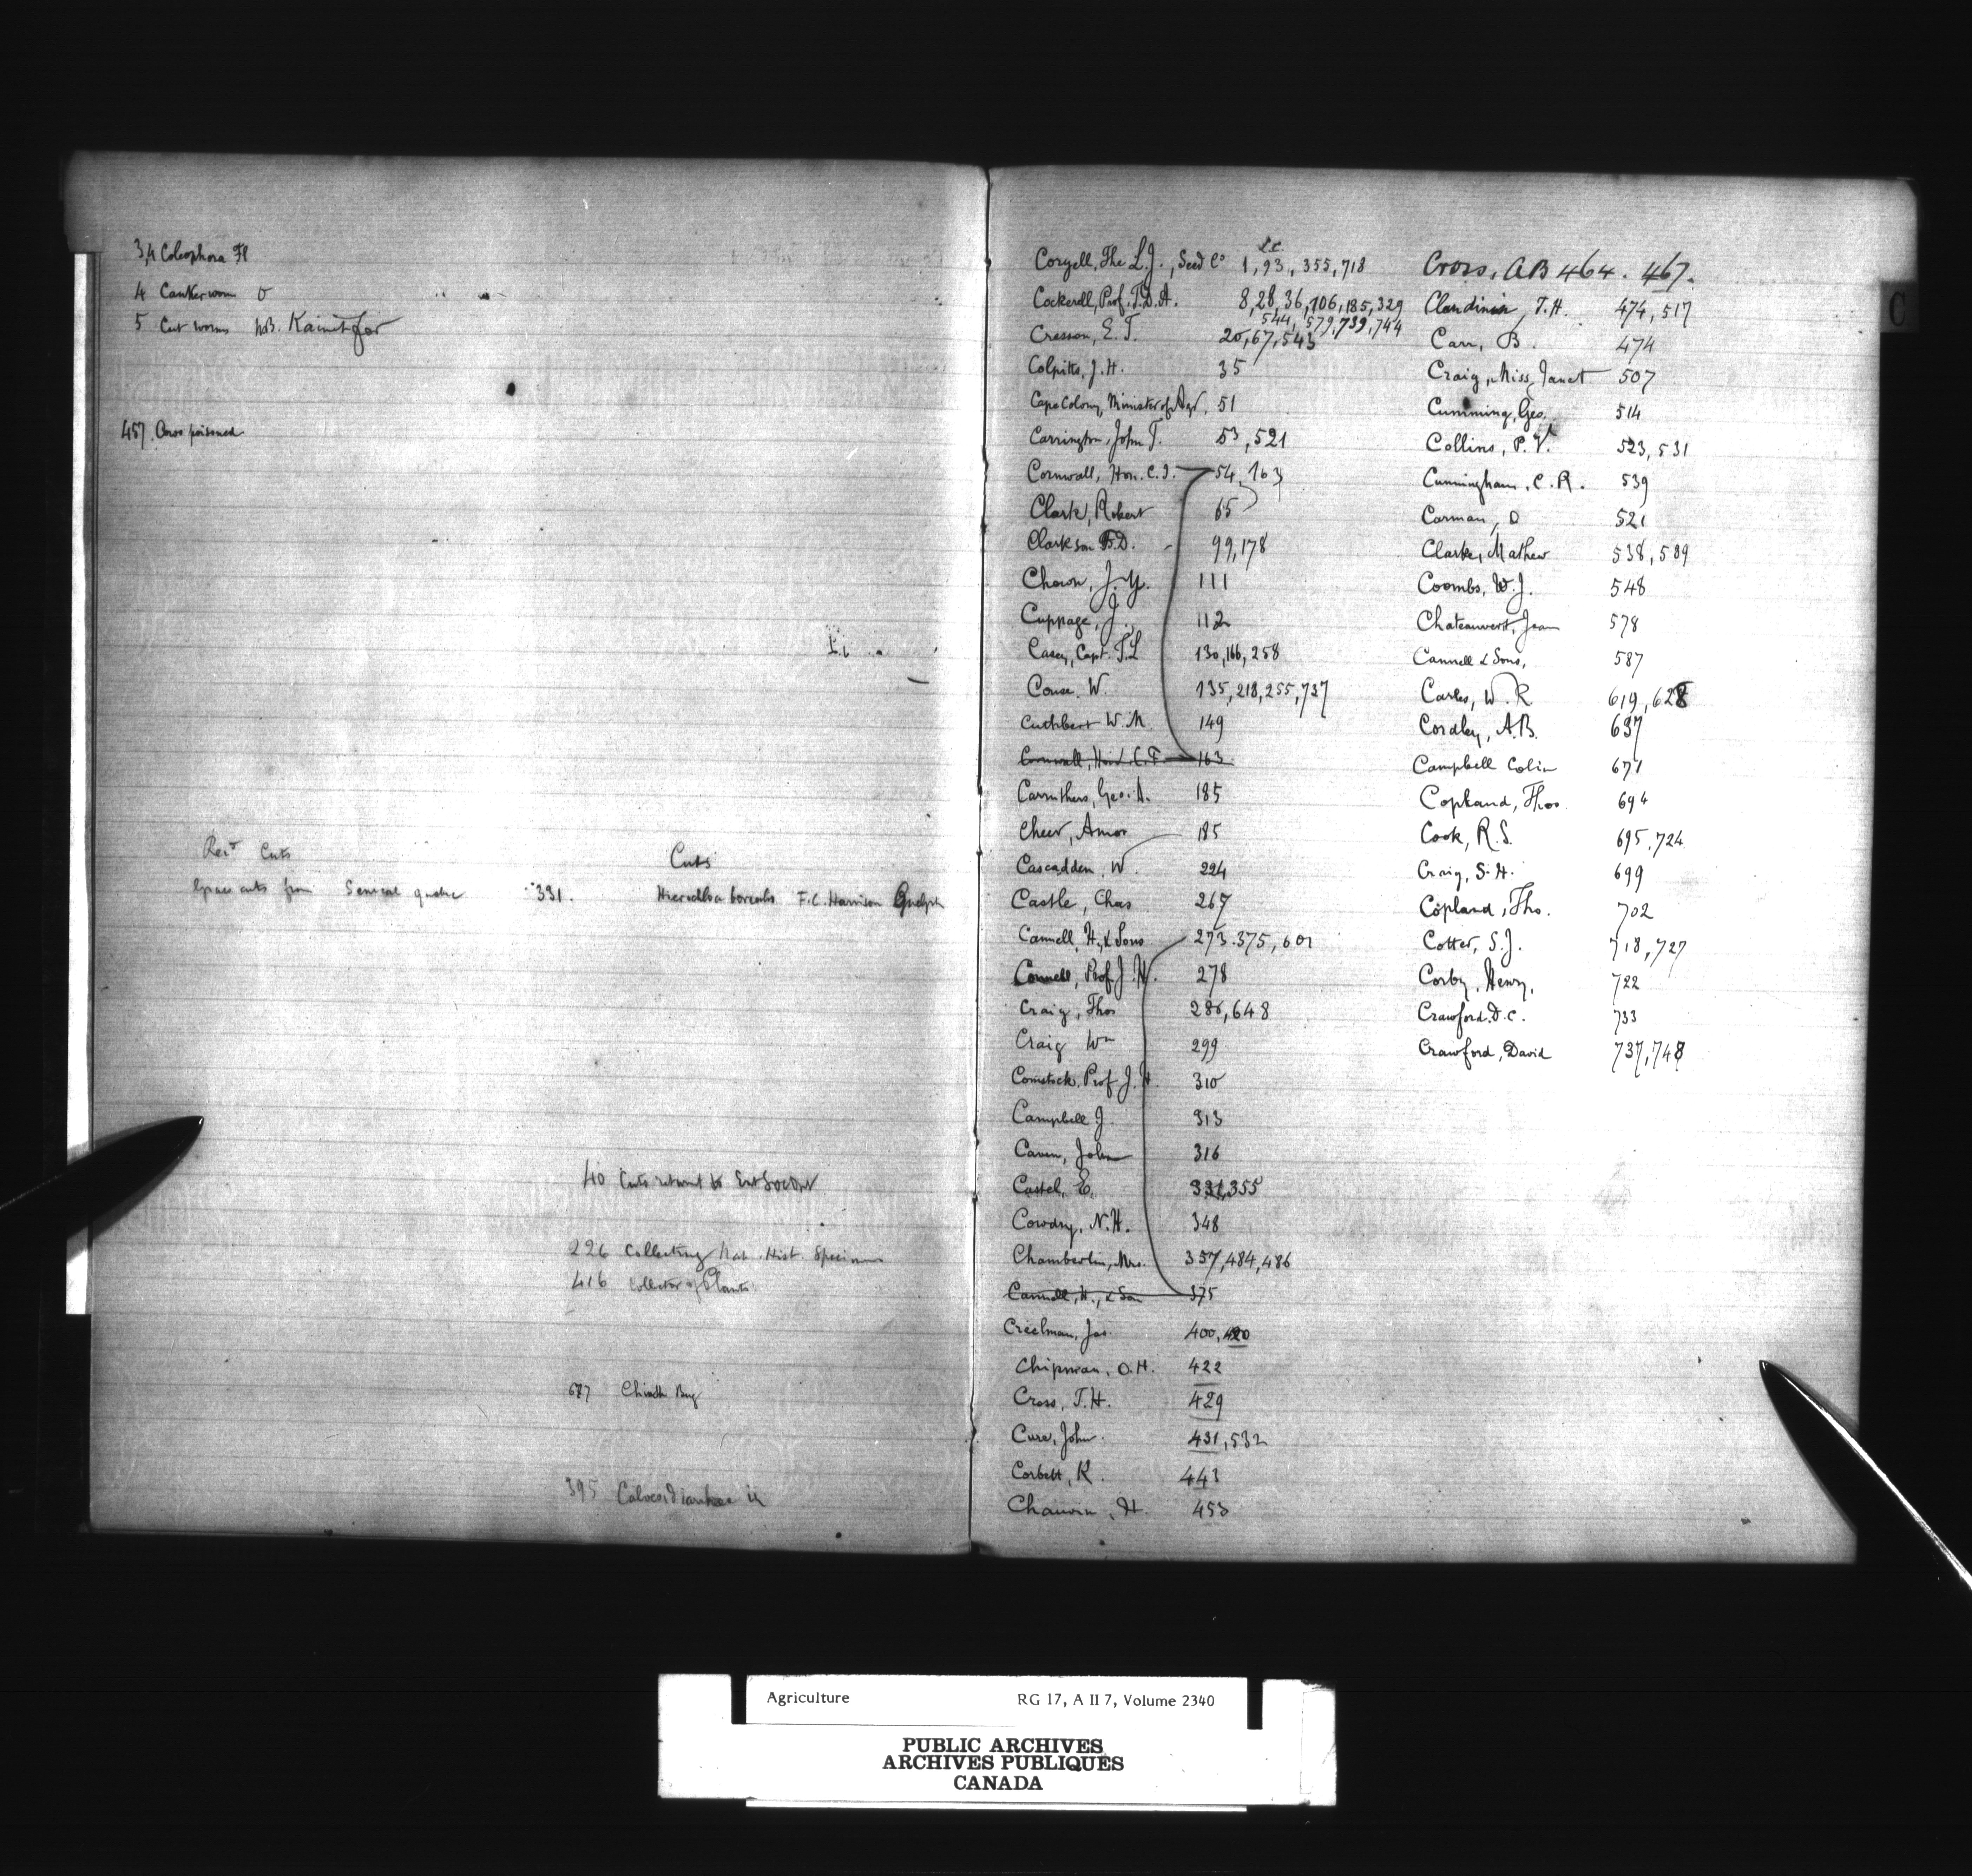 3,4 Coleophora Fl
4 Canker worm
5 Cut worms N.B. Kainit for
457. Cows poisoned
Recd Cuts
Grass cuts from Senecal Quebec 331.
Cuts
Hierochloa borealis F.C. Harrison Guelph
40 Cuts returned to Ent Soc Ont
296 Collecting Nat. Hist. Specimens
416 Collector of Plants
677 Chinch Bug
395
L.C.
Coryell, The L.J., Seed Co 1, 93, 355, 718
Cockerell, Prof. T.D.A. 8, 28, 36, 106, 185, 329
544, 579, 739, 744
Cresson, E.T. 20, 67, 543
Colpitts, J.H. 35
Cape Colony, Minister of Agr, 51
Carrington, John T. 53, 521
Cornwall, Hon. C.F. 54, 163
Clark, Robert 65
Clarkson F.D. 99, 178
Chown, J.Y. 111
Cuppage, J. 112
Casey, Capt. T.L 130, 166, 258
Couse. W. 135, 218, 255, 737
Cuthbert W.M. 149
Cornwall, Hon. C.F 163
Carruthers, Geo. A. 185
Cheer, Amos 185
Cascadden, W 224
Castle, Chas 267
Cannell, H., & Sons 273. 375, 601
Connell, Prof. J.H. 278
Craig, Thos 286, 648
Craig Wm 299
Comstock. Prof J.H 310
Campbell J. 313
Caven, John 316
Castel, E. 331, 355
Cowdry, N.H. 348
Chamberlin, Mrs. 357, 484, 486
Cannell, H., & Son 375
Creelman, Jas. 400, 420
Chipman, O.H. 422
Cross, T.H. 429
Cure, John. 431, 532
Corbett, K. 443
Chauvin, H. 453
Cross, A B 464. 467.
Clandinin, T.H. 474, 517
Carr, B. 474
Craig, Miss, Janet 507
Cumming, Geo. 514
Collins, P.V. 523, 531
Cunningham, C.R. 539
Carman, D 521
Clarke, Mathew 538, 589
Coombs, W.J. 548
Chateauvert, Jean 578
Cannell & Sons, 587
Carles, W.R 619, 628
Cordley, A.B. 637
Campbell Colin 671
Copland, Thos. 694
Cook, R.S. 695, 724
Craig, S.H. 699
Copland, Tho. 702
Cotter, S.J. 718, 727
Corby, Henry, 722
Crawford. D.C. 733
Crawford, David 737, 748
C
Agriculture RG 17, A II 7, Volume 2340
PUBLIC ARCHIVES
ARCHIVES PUBLIQUES
CANADA